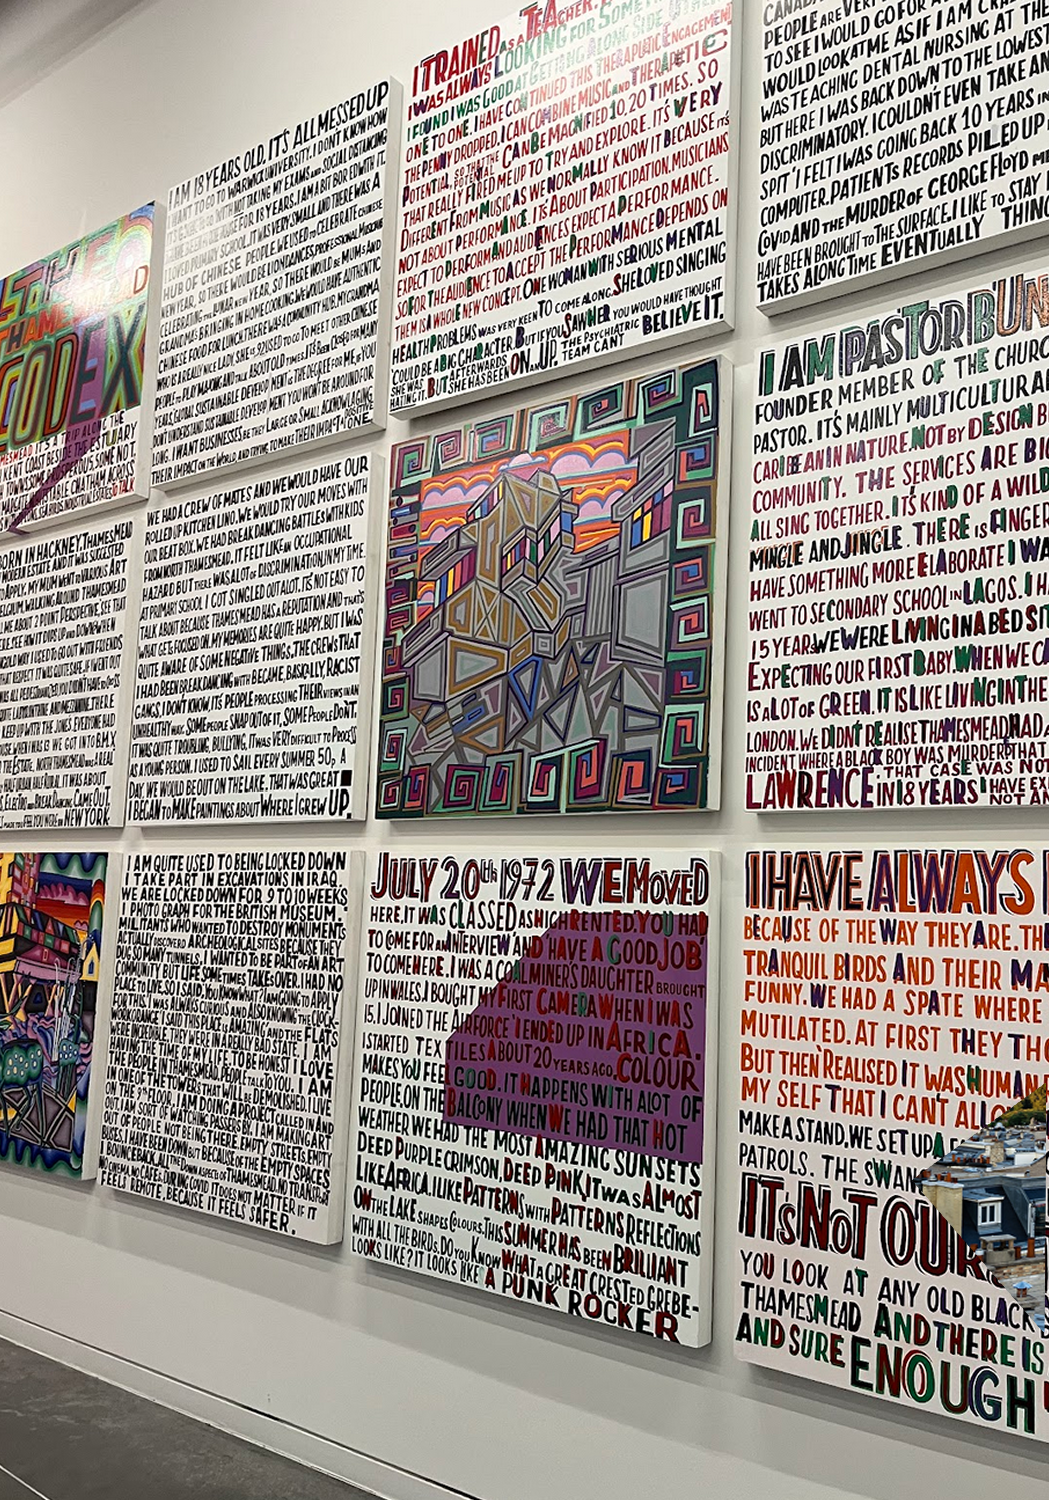 THE
THAMES
CODEX
I AM 18 YEARS OLD. IT'S ALL MESSED UP
I WANT TO GO TO WARWICK UNIVERSITY. I DON'T KNOW HOW
NOT TAKING MY EXAMS AND SOCIAL DISTANCING
HOUSE FOR 18 YEARS. I AM A BIT BORED WITH IT.
I LOVED PRIMARY SCHOOL. IT WAS VERY SMALL AND THERE WAS A
HUB OF CHINESE PEOPLE. WE USED TO CELEBRATE CHINESE
NEW YEAR, SO THERE WOULD BE LION DANCES, PROFESSIONAL MUSICIANS
CELEBRATING LUNAR NEW YEAR, SO THERE WOULD BE MUMS AND
GRANDMAS BRINGING IN HOME COOKING. WE WOULD HAVE AUTHENTIC
CHINESE FOOD FOR LUNCH. THERE WAS A COMMUNITY HUB. MY GRANDMA,
WHO IS A REALLY NICE LADY SHE IS 92, USED TO GO TO MEET OTHER CHINESE
PEOPLE TO PLAY MAHJONG AND TALK ABOUT OLD TIMES. IT'S BEEN CLOSED FOR MANY
YEARS. GLOBAL SUSTAINABLE DEVELOPMENT IS THE DEGREE FOR ME. IF YOU
DON'T UNDERSTAND SUSTAINABLE DEVELOPMENT YOU WON'T BE AROUND FOR
LONG. I WANT BUSINESSES, BE THEY LARGE OR SMALL ACKNOWLAGING
THEIR IMPACT ON THE WORLD, AND TRYING TO MAKE THEIR IMPACT A POSITIVE ONE.
I TRAINED AS A TEACHER.
I WAS ALWAYS LOOKING FOR
I FOUND I WAS GOOD AT GETTING ALONG SIDE OTHERS
ONE TO ONE. I HAVE CONTINUED THIS THERAPUTIC ENGAGEMENT
THE PENNY DROPPED. I CAN COMBINE MUSIC AND THERAPETIC
POTENTIAL, SO THAT THE POTENTIAL CAN BE MAGNIFIED 10, 20 TIMES. SO
THAT REALLY FIRED ME UP TO TRY AND EXPLORE. IT'S VERY
DIFFERENT FROM MUSIC AS WE NORMALLY KNOW IT BECAUSE IT'S
NOT ABOUT PERFORMANCE. IT'S ABOUT PARTICIPATION. MUSICIANS
EXPECT TO PERFORM AND AUDIENCES EXPECT A PERFORMANCE.
SO FOR THE AUDIENCE TO ACCEPT THE PERFORMANCE DEPENDS ON
THEM IS A WHOLE NEW CONCEPT. ONE WOMAN WITH SERIOUS MENTAL
HEALTH PROBLEMS WAS VERY KEEN TO COME ALONG. SHE LOVED SINGING
COULD BE A BIG CHARACTER. BUT IF YOU SAW HER YOU WOULD HAVE THOUGHT
SHE WAS EATING IT. BUT AFTERWARDS SHE HAS BEEN ON AN UP. THE PSYCHIATRIC TEAM CAN'T BELIEVE IT.
CANADA
PEOPLE ARE VERY
TO SEE I WOULD GO FOR A
WOULD LOOK AT ME AS IF I AM CRAZY
WAS TEACHING DENTAL NURSING AT THE
BUT HERE I WAS BACK DOWN TO THE LOWEST
DISCRIMINATORY. I COULDN'T EVEN TAKE AN
SPIT. I FELT I WAS GOING BACK 10 YEARS IN
COMPUTER. PATIENTS RECORDS PILED UP
COVID AND THE MURDER OF GEORGE FLOYD
HAVE BEEN BROUGHT TO THE SURFACE. I LIKE TO STAY
TAKES A LONG TIME EVENTUALLY THING
BORN IN HACKNEY. THAMESMEAD
MODERN ESTATE AND IT WAS SUGGESTED
TO APPLY. MY MUM WENT TO VARIOUS ART
BELGIUM. WALKING AROUND THAMESMEAD
ME ABOUT 2 POINT PERSPECTIVE. SEE THAT
KEEP UP WITH THE JONES. EVERYONE HAD
WHEN I WAS 12 WE GOT INTO B.M.X
THE ESTATE. NORTH THAMESMEAD WAS A REAL
HALF URBAN HALF RURAL. IT WAS ABOUT
ELECTRO AND BREAK DANCING CAME OUT.
MADE YOU FEEL YOU WERE IN NEW YORK
WE HAD A CREW OF MATES AND WE WOULD HAVE OUR
ROLLED UP KITCHEN LINO. WE WOULD TRY OUR MOVES WITH
OUR BEAT BOX. WE HAD BREAK DANCING BATTLES WITH KIDS
FROM NORTH THAMESMEAD. IT FELT LIKE AN OCCUPATIONAL
HAZARD BUT THERE WAS A LOT OF DISCRIMINATION IN MY TIME.
AT PRIMARY SCHOOL I GOT SINGLED OUT A LOT. IT'S NOT EASY TO
TALK ABOUT BECAUSE THAMESMEAD HAS A REPUTATION AND THAT'S
WHAT GETS FOCUSED ON. MY MEMORIES ARE QUITE HAPPY. BUT I WAS
QUITE AWARE OF SOME NEGATIVE THINGS. THE CREWS THAT
I HAD BEEN BREAKDANCING WITH BECAME, BASICALLY, RACIST
GANGS. I DON'T KNOW, ITS PEOPLE PROCESSING THEIR VIEWS IN AN
UNHEALTHY WAY. SOME PEOPLE SNAP OUT OF IT, SOME PEOPLE DON'T.
IT WAS QUITE TROUBLING, BULLYING, IT WAS VERY DIFFICULT TO PROCESS
AS A YOUNG PERSON. I USED TO SAIL EVERY SUMMER 50p A
DAY. WE WOULD BE OUT ON THE LAKE. THAT WAS GREAT
I BEGAN TO MAKE PAINTINGS ABOUT WHERE I GREW UP.
I AM PASTOR BUN
FOUNDER MEMBER OF THE CHURCH
PASTOR. IT'S MAINLY MULTICULTURAL
CARIBEAN IN NATURE. NOT BY DESIGN B
COMMUNITY. THE SERVICES ARE BIG
ALL SING TOGETHER. IT'S KIND OF A WILD
MINGLE AND JINGLE. THERE IS FINGER
HAVE SOMETHING MORE ELABORATE I WA
WENT TO SECONDARY SCHOOL IN LAGOS. I HA
15 YEARS WE WERE LIVING IN A BED SIT
EXPECTING OUR FIRST BABY. WHEN WE CA
IS A LOT OF GREEN. IT IS LIKE LIVING IN THE
LONDON. WE DIDN'T REALISE THAMESMEAD HAD A
INCIDENT WHERE A BLACK BOY WAS MURDERED THAT
LAWRENCE; THAT CASE WAS NOT
IN 18 YEARS I HAVE EX
NOT AN
I AM QUITE USED TO BEING LOCKED DOWN
I TAKE PART IN EXCAVATIONS IN IRAQ
WE ARE LOCKED DOWN FOR 9 TO 10 WEEKS
I PHOTOGRAPH FOR THE BRITISH MUSEUM.
MILITANTS WHO WANTED TO DESTROY MONUMENTS
ACTUALLY DISCOVERED ARCHEOLOGICAL SITES BECAUSE THEY
DUG SO MANY TUNNELS. I WANTED TO BE PART OF AN ART
COMMUNITY BUT LIFE SOMETIMES TAKES OVER. I HAD NO
PLACE TO LIVE. SO I SAID, YOU KNOW WHAT? I AM GOING TO APPLY
FOR THIS. I WAS ALWAYS CURIOUS AND ALSO KNOWING THE CLOCK-
WORK ORANGE I SAID THIS PLACE IS AMAZING AND THE FLATS
WERE INCREDIBLE. THEY WERE IN A REALLY BAD STATE. I AM
HAVING THE TIME OF MY LIFE, TO BE HONEST I LOVE
THE PEOPLE IN THAMESMEAD. PEOPLE TALK TO YOU. I AM
IN ONE OF THE TOWERS THAT WILL BE DEMOLISHED. I LIVE
ON THE 9TH FLOOR. I AM DOING A PROJECT CALLED IN AND
OUT I AM SORT OF WATCHING PASSERS BY. I AM MAKING ART
OUT OF PEOPLE NOT BEING THERE. EMPTY STREETS, EMPTY
BUSES. I HAVE BEEN DOWN BUT BECAUSE OF THE EMPTY SPACES
BOUNCE BACK. ALL THE DOWN ASPECTS OF THAMESMEAD, NO TRANSPORT
NO CINEMA, NO CAFE. DURING COVID IT DOES NOT MATTER IF IT
FEELS REMOTE, BECAUSE IT FEELS SAFER.
JULY 20th 1972 WE MOVED
HERE. IT WAS CLASSED AS HIGH RENTED. YOU HAD
TO COME FOR AN INTERVIEW AND 'HAVE A GOOD JOB'
TO COME HERE. I WAS A COALMINER'S DAUGHTER BROUGHT
UP IN WALES. I BOUGHT MY FIRST CAMERA WHEN I WAS
15. I JOINED THE AIRFORCE 'I ENDED UP IN AFRICA.
I STARTED TEXTILES ABOUT 20 YEARS AGO. COLOUR
MAKES YOU FEEL GOOD. IT HAPPENS WITH A LOT OF
PEOPLE. ON THE BALCONY WHEN WE HAD THAT HOT
WEATHER WE HAD THE MOST AMAZING SUNSETS
DEEP PURPLE CRIMSON, DEEP PINK, IT WAS ALMOST
LIKE AFRICA. I LIKE PATTERNS WITH PATTERNS REFLECTIONS
ON THE LAKE SHAPES COLOURS. THIS SUMMER HAS BEEN BRILLIANT
WITH ALL THE BIRDS. DO YOU KNOW WHAT A GREAT CRESTED GREBE-
LOOKS LIKE? IT LOOKS LIKE A PUNK ROCKER
I HAVE ALWAYS
BECAUSE OF THE WAY THEY ARE. TH
TRANQUIL BIRDS AND THEIR MA
FUNNY. WE HAD A SPATE WHERE
MUTILATED. AT FIRST THEY THO
BUT THEN REALISED IT WAS HUMAN
MY SELF THAT I CAN'T ALLO
MAKE A STAND. WE SET UP A
PATROLS. THE SWANS
IT'S NOT OUR
YOU LOOK AT ANY OLD BLACK
THAMESMEAD AND THERE IS
AND SURE ENOUGH